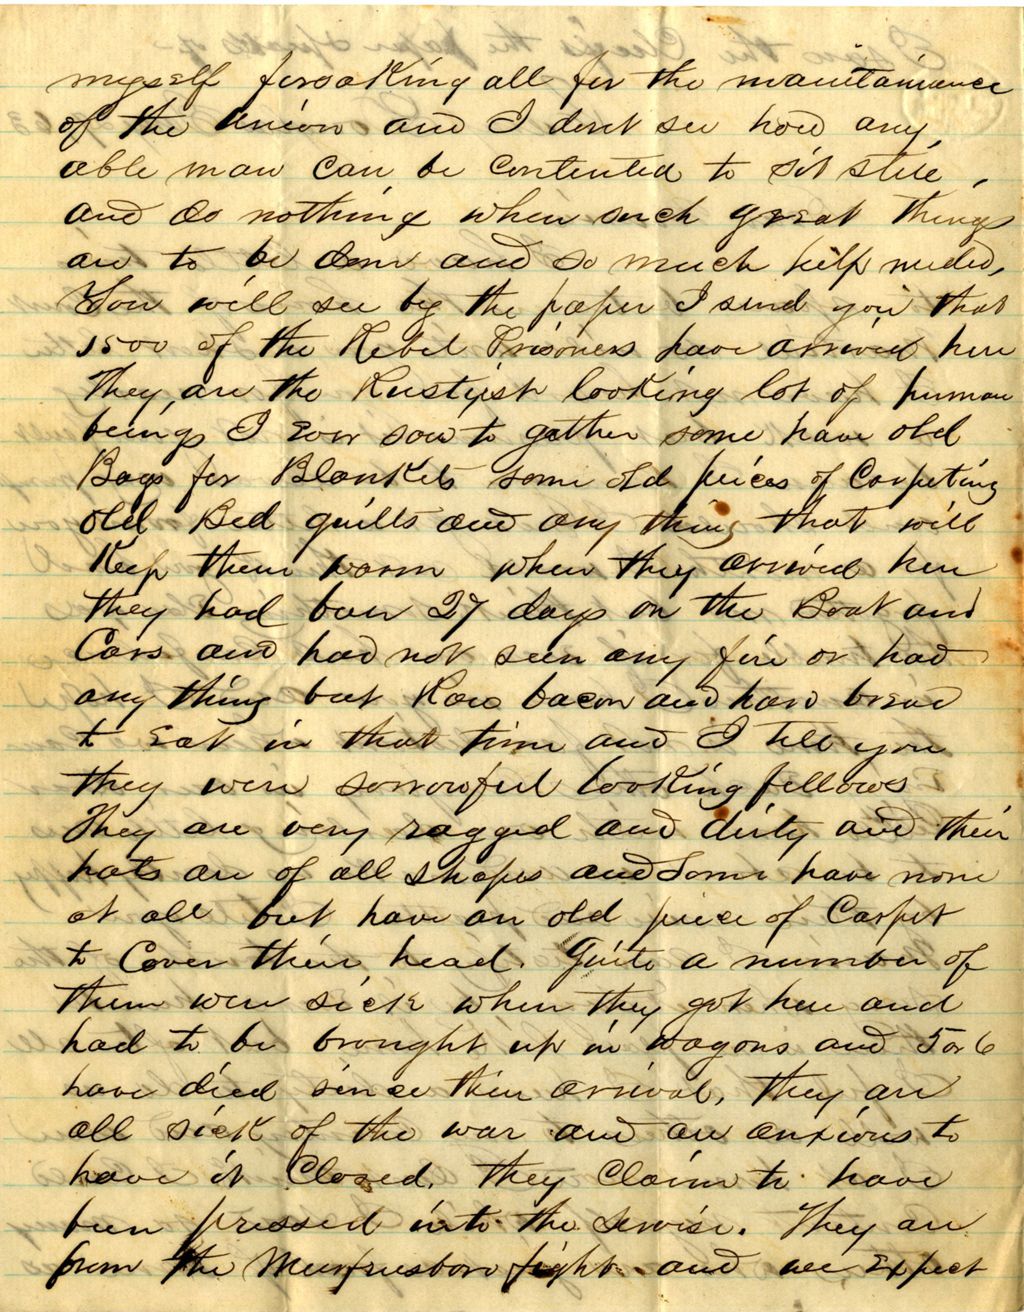 myself forsaking all for the maintainance
of the Union and I dont see how any
able man can be contented to sit still,
and do nothing when such great things
are to be done and so much help needed,
You will see by the paper I send you that
1500 of the Rebel Prisoners have arrived here
They are the Rustyist looking lot of human
beings I Ever saw to gether some have old
Bags for Blankets some old peices of Carpeting
old Bed quilts and any thing that will
Keep them warm when they arrived here
they had been 27 days on the Boat and
Cars and had not seen any fire or had
any thing but Raw bacon and hard bread
to Eat in that time and I tell you
they were sorrowful looking fellows
They are very ragged and dirty and their
hats are of all shapes and Some have none
at all but have an old piece of Carpet
to Cover their head. Quite a number of
them were sick when they got here and
had to be brought up in wagons and 5 or 6
have died since their arrival, They are
all sick of the war and are anxious to
have it Closed. they Claim to have
been pressed into the servise. They are
from the Murfreesboro fight and we Expect